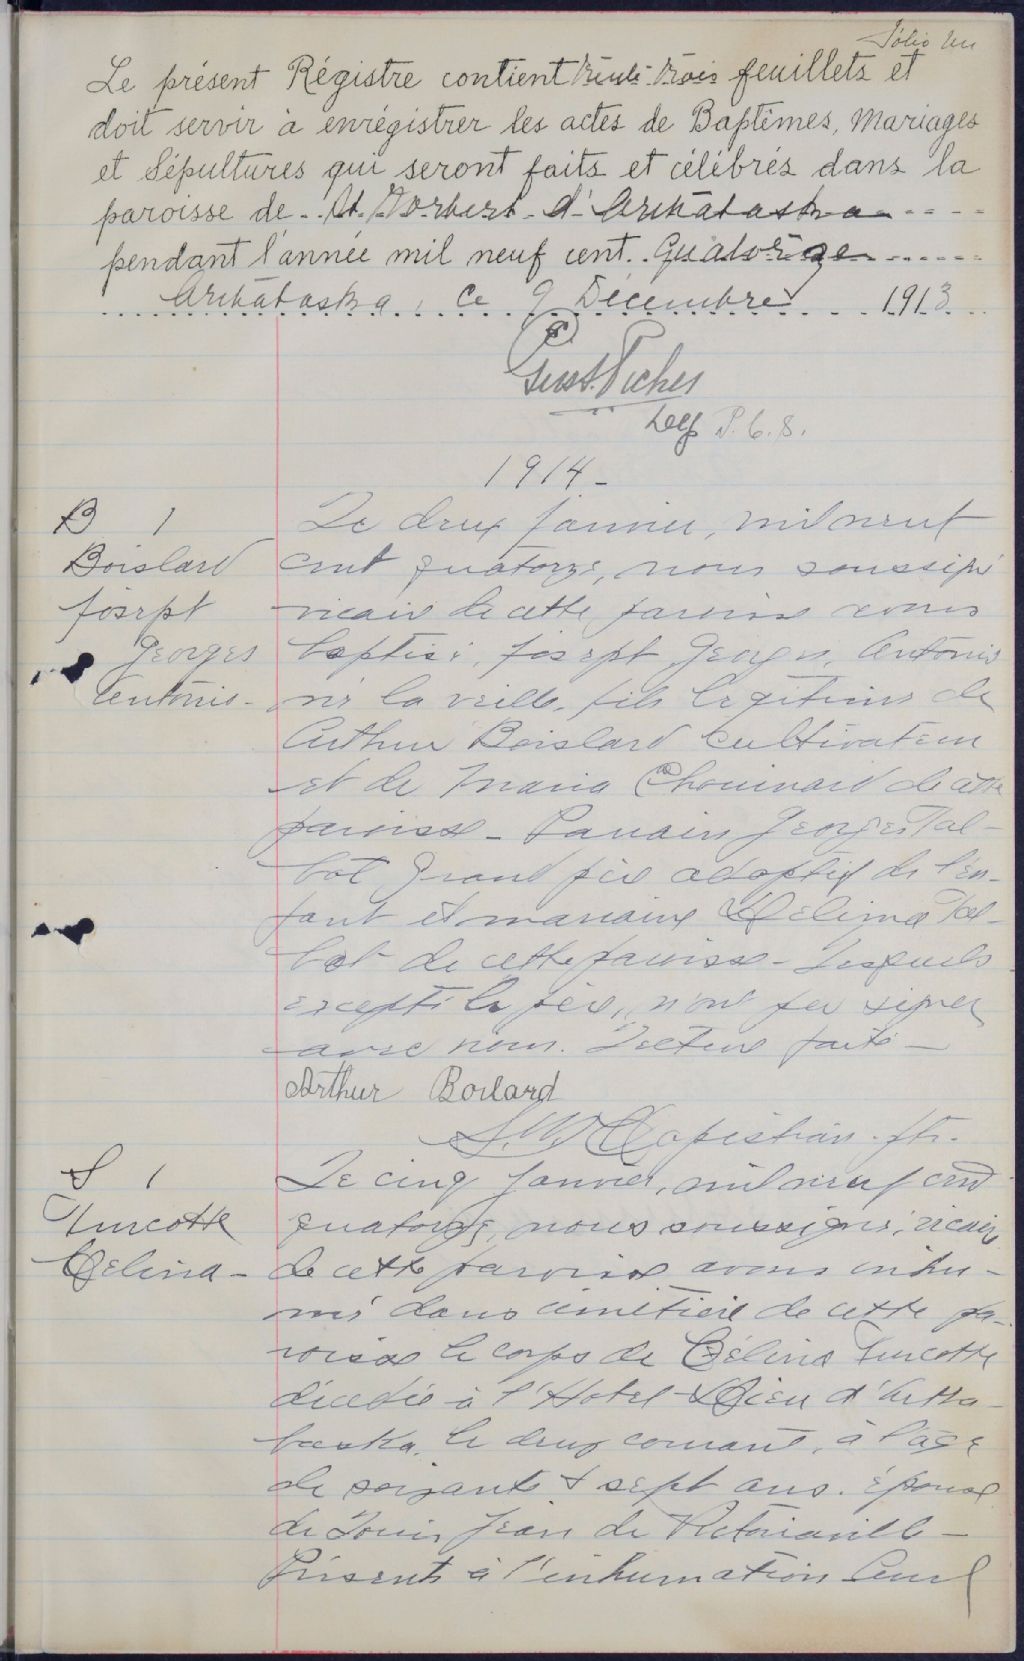 Folio un
Le présent Régistre contient trente-trois feuillets et
doit servir à enrégistrer les actes de Baptêmes, Mariages
et Sépultures qui seront faits et célébrés dans la
paroisse de St. Norbert d'Arthabaska
pendant l'année mil neuf cent Quatorze
Arthabaska, ce 9 Décembre 1913
P. C. S.
1914 -
B 1
Boislard
Joseph
Georges
Antonio -
Le deux janvier, mil neuf
cent quatorze, nous soussigné
vicaire de cette paroisse avons
baptisé, Joseph Georges, Antonio
né la veille, fils légitime de
Arthur Boislard Cultivateur
et de Maria Chouinard de cette
paroisse - Parrain Georges Tal-
bot Grand père adoptif de l'en-
fant et marraine Délima Tal-
bot de cette paroisse - Lesquels
excepté le père, n'ont pu signer
avec nous. Lecture faite -
Arthur Boilard
Capistran. ptr.
S 1
Turcotte
Célina -
Le cinq janvier, mil neuf cent
quatorze, nous soussigné, vicaire
de cette paroisse avons inhu-
mé dans cimetière de cette pa-
roisse le corps de Célina Turcotte
décédée à l'Hotel-Dieu d'Artha-
baska, le deux courant, à l'âge
de soixante & sept ans. épouse
de Louis Jean de Victoriaville -
Présents à l'inhumation